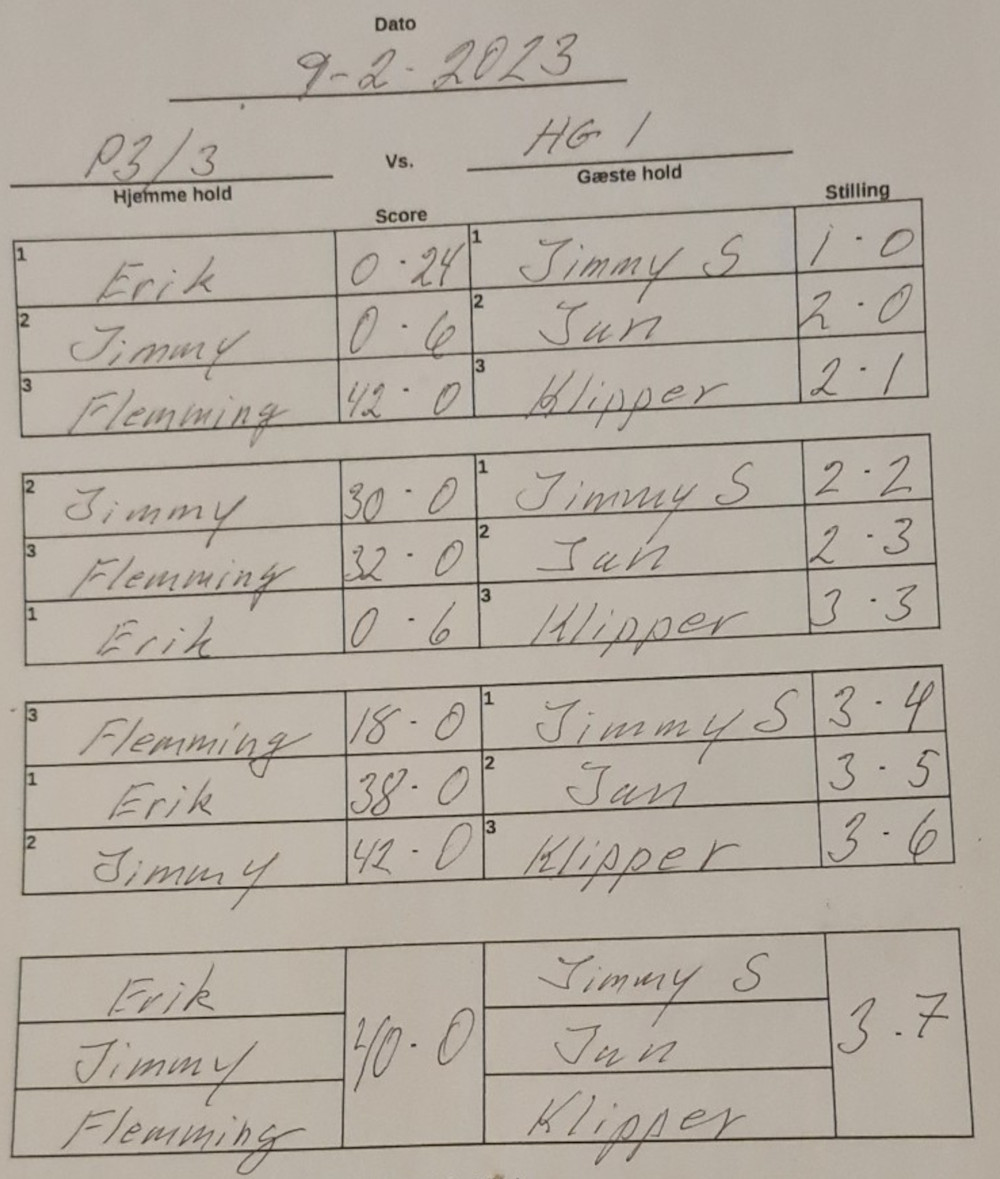 Dato
9-2-2023
P3/3 Vs. HG 1
Hjemme hold Gæste hold
Score Stilling
1 Erik 0 · 24 1 Jimmy S 1 · 0
2 Jimmy 0 · 6 2 Jan 2 · 0
3 Flemming 42 · 0 3 Klipper 2 · 1
2 Jimmy 30 · 0 1 Jimmy S 2 · 2
3 Flemming 32 · 0 2 Jan 2 · 3
1 Erik 0 · 6 3 Klipper 3 · 3
3 Flemming 18 · 0 1 Jimmy S 3 · 4
1 Erik 38 · 0 2 Jan 3 · 5
2 Jimmy 42 · 0 3 Klipper 3 · 6
Erik Jimmy S
Jimmy 40 · 0 Jan 3 · 7
Flemming Klipper